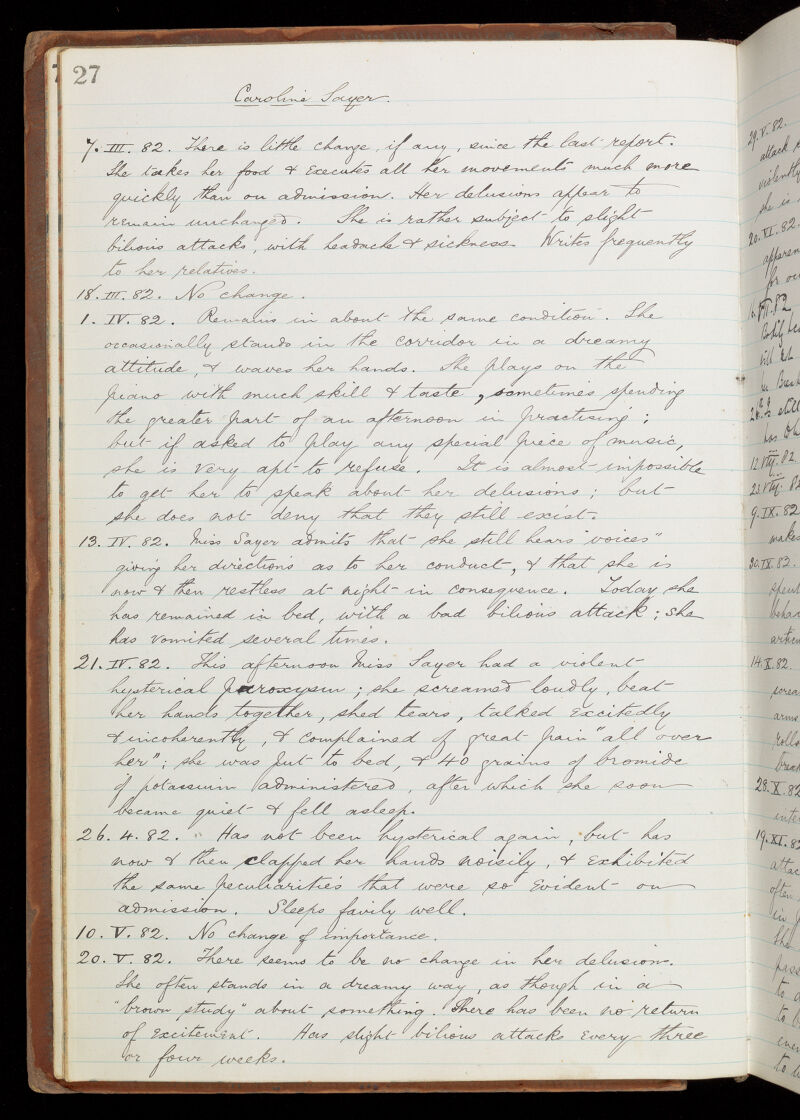 27
Caroline Sayer.
7. III. 82. There is little change, if any, since the last report.
She takes her food & executes all her movements much more
quickly than on admission. Her delusions appear to
remain unchanged. She is rather subject to slight
bilious attacks, with headache & sickness. Writes frequently
to her relatives.
18. III. 82. No change.
1. IV. 82. Remains in about the same condition. She
occasionally stands in the corridor in a dreamy
attitude, & waves her hands. She plays on the
piano with much skill & taste, sometimes spending
the greater part of an afternoon in practising;
but if asked to play any special piece of music,
she is very apt to refuse. It is almost impossible
to get her to speak about her delusions; but
she does not deny that they still exist.
13. IV. 82. Miss Sayer admits that she still hears "voices"
giving her directions as to her conduct, & that she is
now & then restless at night in consequence. Today she
has remained in bed, with a bad bilious attack; she
has vomited several times.
21. IV. 82. This afternoon Miss Sayer had a violent
hysterical paroxysm; she screamed loudly, beat
her hands together, shed tears, talked excitedly
& incoherently, & complained of great pain "all over
her"; she was put to bed, & 40 grains of bromide
of potassium administered, after which she soon
became quiet & fell asleep.
26. 4. 82. Has not been hysterical again, but has
now & then clapped her hands noisily, & exhibited
the same peculiarities that were so evident on
admission. Sleeps fairly well.
10. V. 82. No change of importance.
20. V. 82. There seems to be no change in her delusions.
She often stands in a dreamy way, as though in a
"brown study" about something. There has been no return
of excitement. Has slight bilious attacks every three
or four weeks.
29. V. 82.
attack
violently
she is
20. VI. 82.
apparen
for
12. VIII. 82
23. VIII. 82
9. IX. 82
makes
30. IX. 82.
spent
14. X. 82.
screa
arms
rolls
28. X. 82
inte
19. XI. 82
attac
often
in
She
pass
to
to